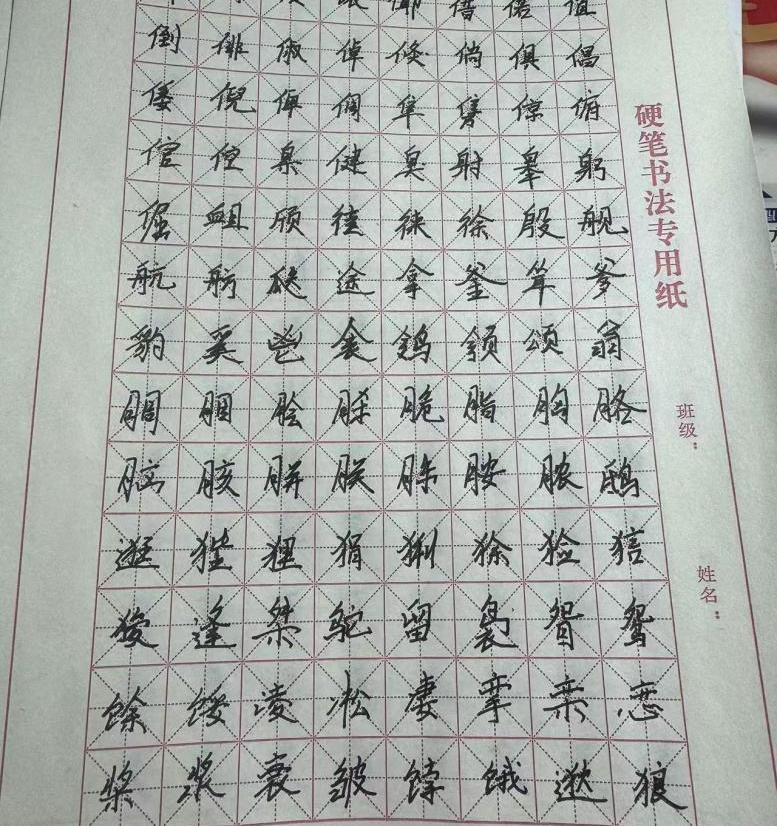 借 偌 值
倒 俳 俶 倬 倏 倘 俱 倡
倭 倪 俾 倜 隼 隽 倞 俯
倌 倥 臬 健 臭 射 皋 躬
倔 衄 颀 徒 徕 徐 殷 舰
航 舫 瓞 途 拿 釜 耸 爹
豹 奚 鬯 衾 鸰 颁 颂 翁
胴 胭 脍 脎 脆 脂 胸 胳
脏 胲 胼 朕 脒 胺 脓 鸱
逛 狴 狸 狷 猁 狳 猃 狺
狻 逢 桀 鸵 留 袅 眢 鸳
馀 馁 凌 凇 凄 挛 栾 恋
桨 浆 衰 皱 饽 饿 逖 狼
硬笔书法专用纸
班级：
姓名：